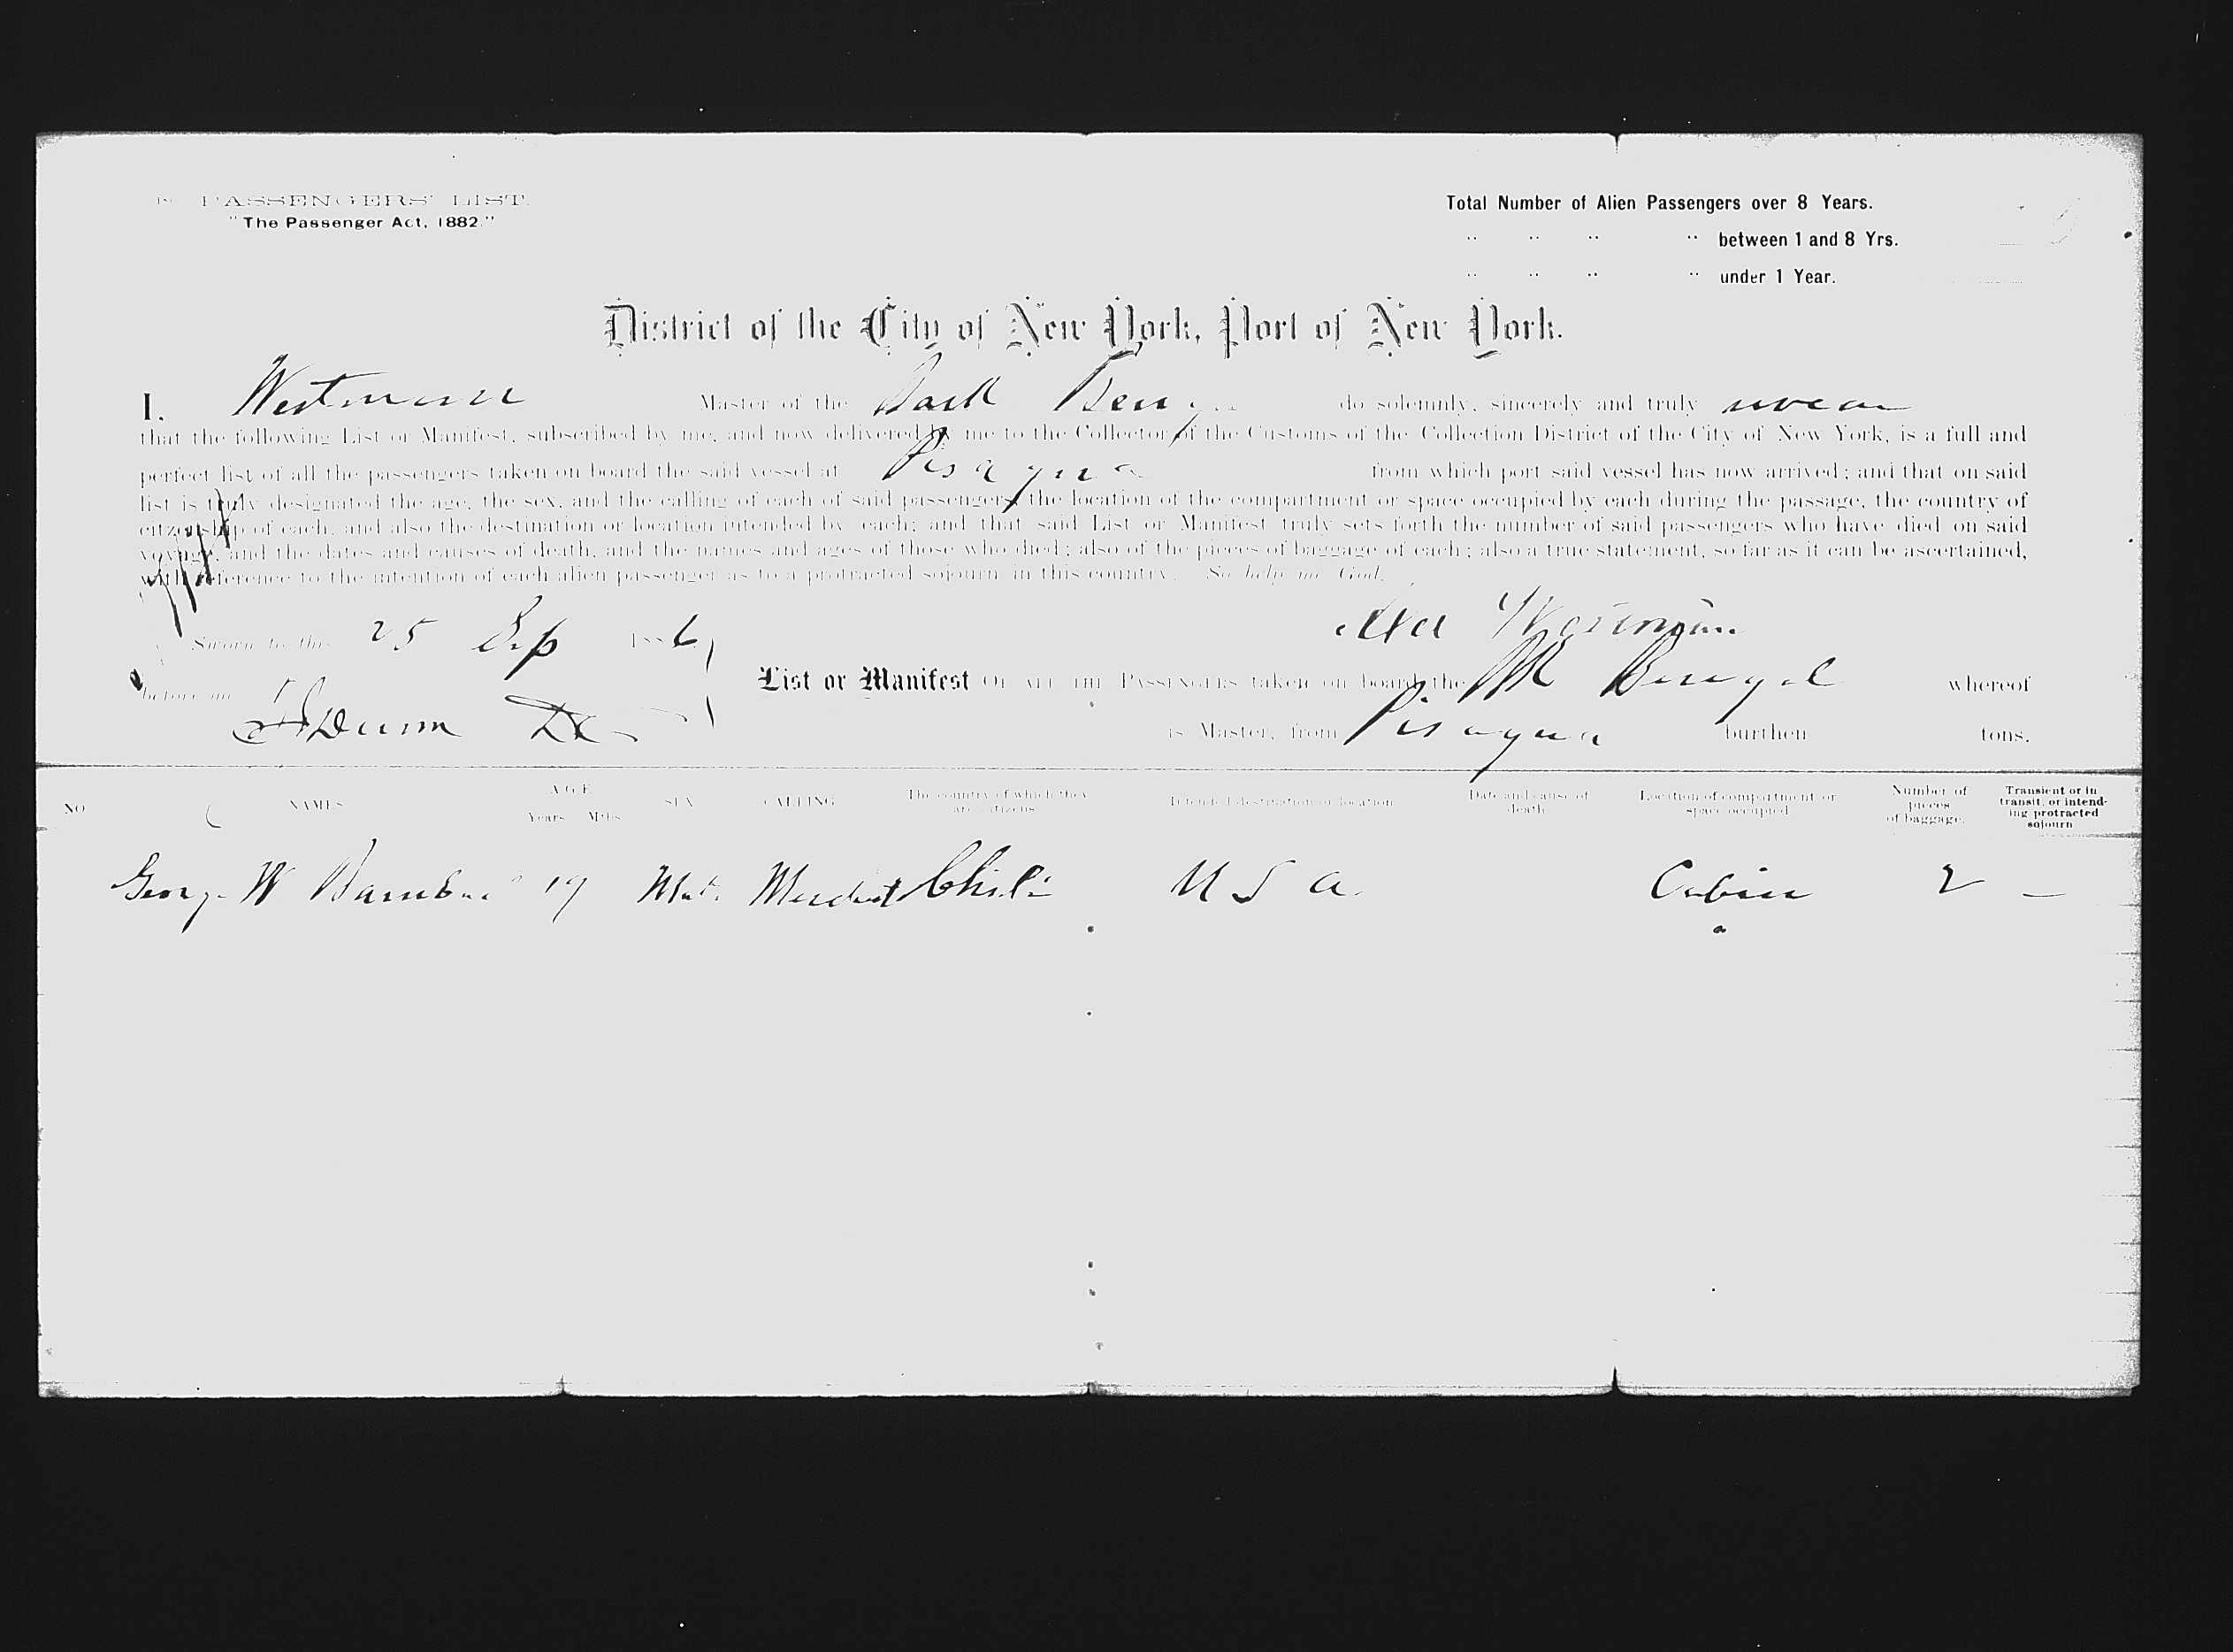 PASSENGERS' LIST.
"The Passenger Act, 1882."
Total Number of Alien Passengers over 8 Years.
" " " " between 1 and 8 Yrs.
" " " " under 1 Year.
District of the City of New York, Port of New York.
I, Westman Master of the Bark Bengal do solemnly, sincerely and truly swear
that the following List or Manifest, subscribed by me, and now delivered by me to the Collector of the Customs of the Collection District of the City of New York, is a full and
perfect list of all the passengers taken on board the said vessel at Pisagua from which port said vessel has now arrived; and that on said
list is truly designated the age, the sex, and the calling of each of said passengers, the location of the compartment or space occupied by each during the passage, the country of
citzenship of each, and also the destination or location intended by each; and that said List or Manifest truly sets forth the number of said passengers who have died on said
voyage, and the dates and causes of death, and the names and ages of those who died; also of the pieces of baggage of each; also a true statement, so far as it can be ascertained,
with reference to the intention of each alien passenger as to a protracted sojourn in this country. So help me God.
Sworn to this 25 Sep 1886
before me Dunn
List or Manifest OF ALL THE PASSENGERS taken on board the Bk Bengal whereof
is Master, from Pisagua burthen tons.
NO. NAMES AGE Years Mths SEX CALLING The country of which they are citizens Intended destination or location Date and cause of death Location of compartment or space occupied Number of pieces of baggage. Transient or in transit, or intending protracted sojourn
George W 19 Male Merchant Chili U S A. Cabin 2 —